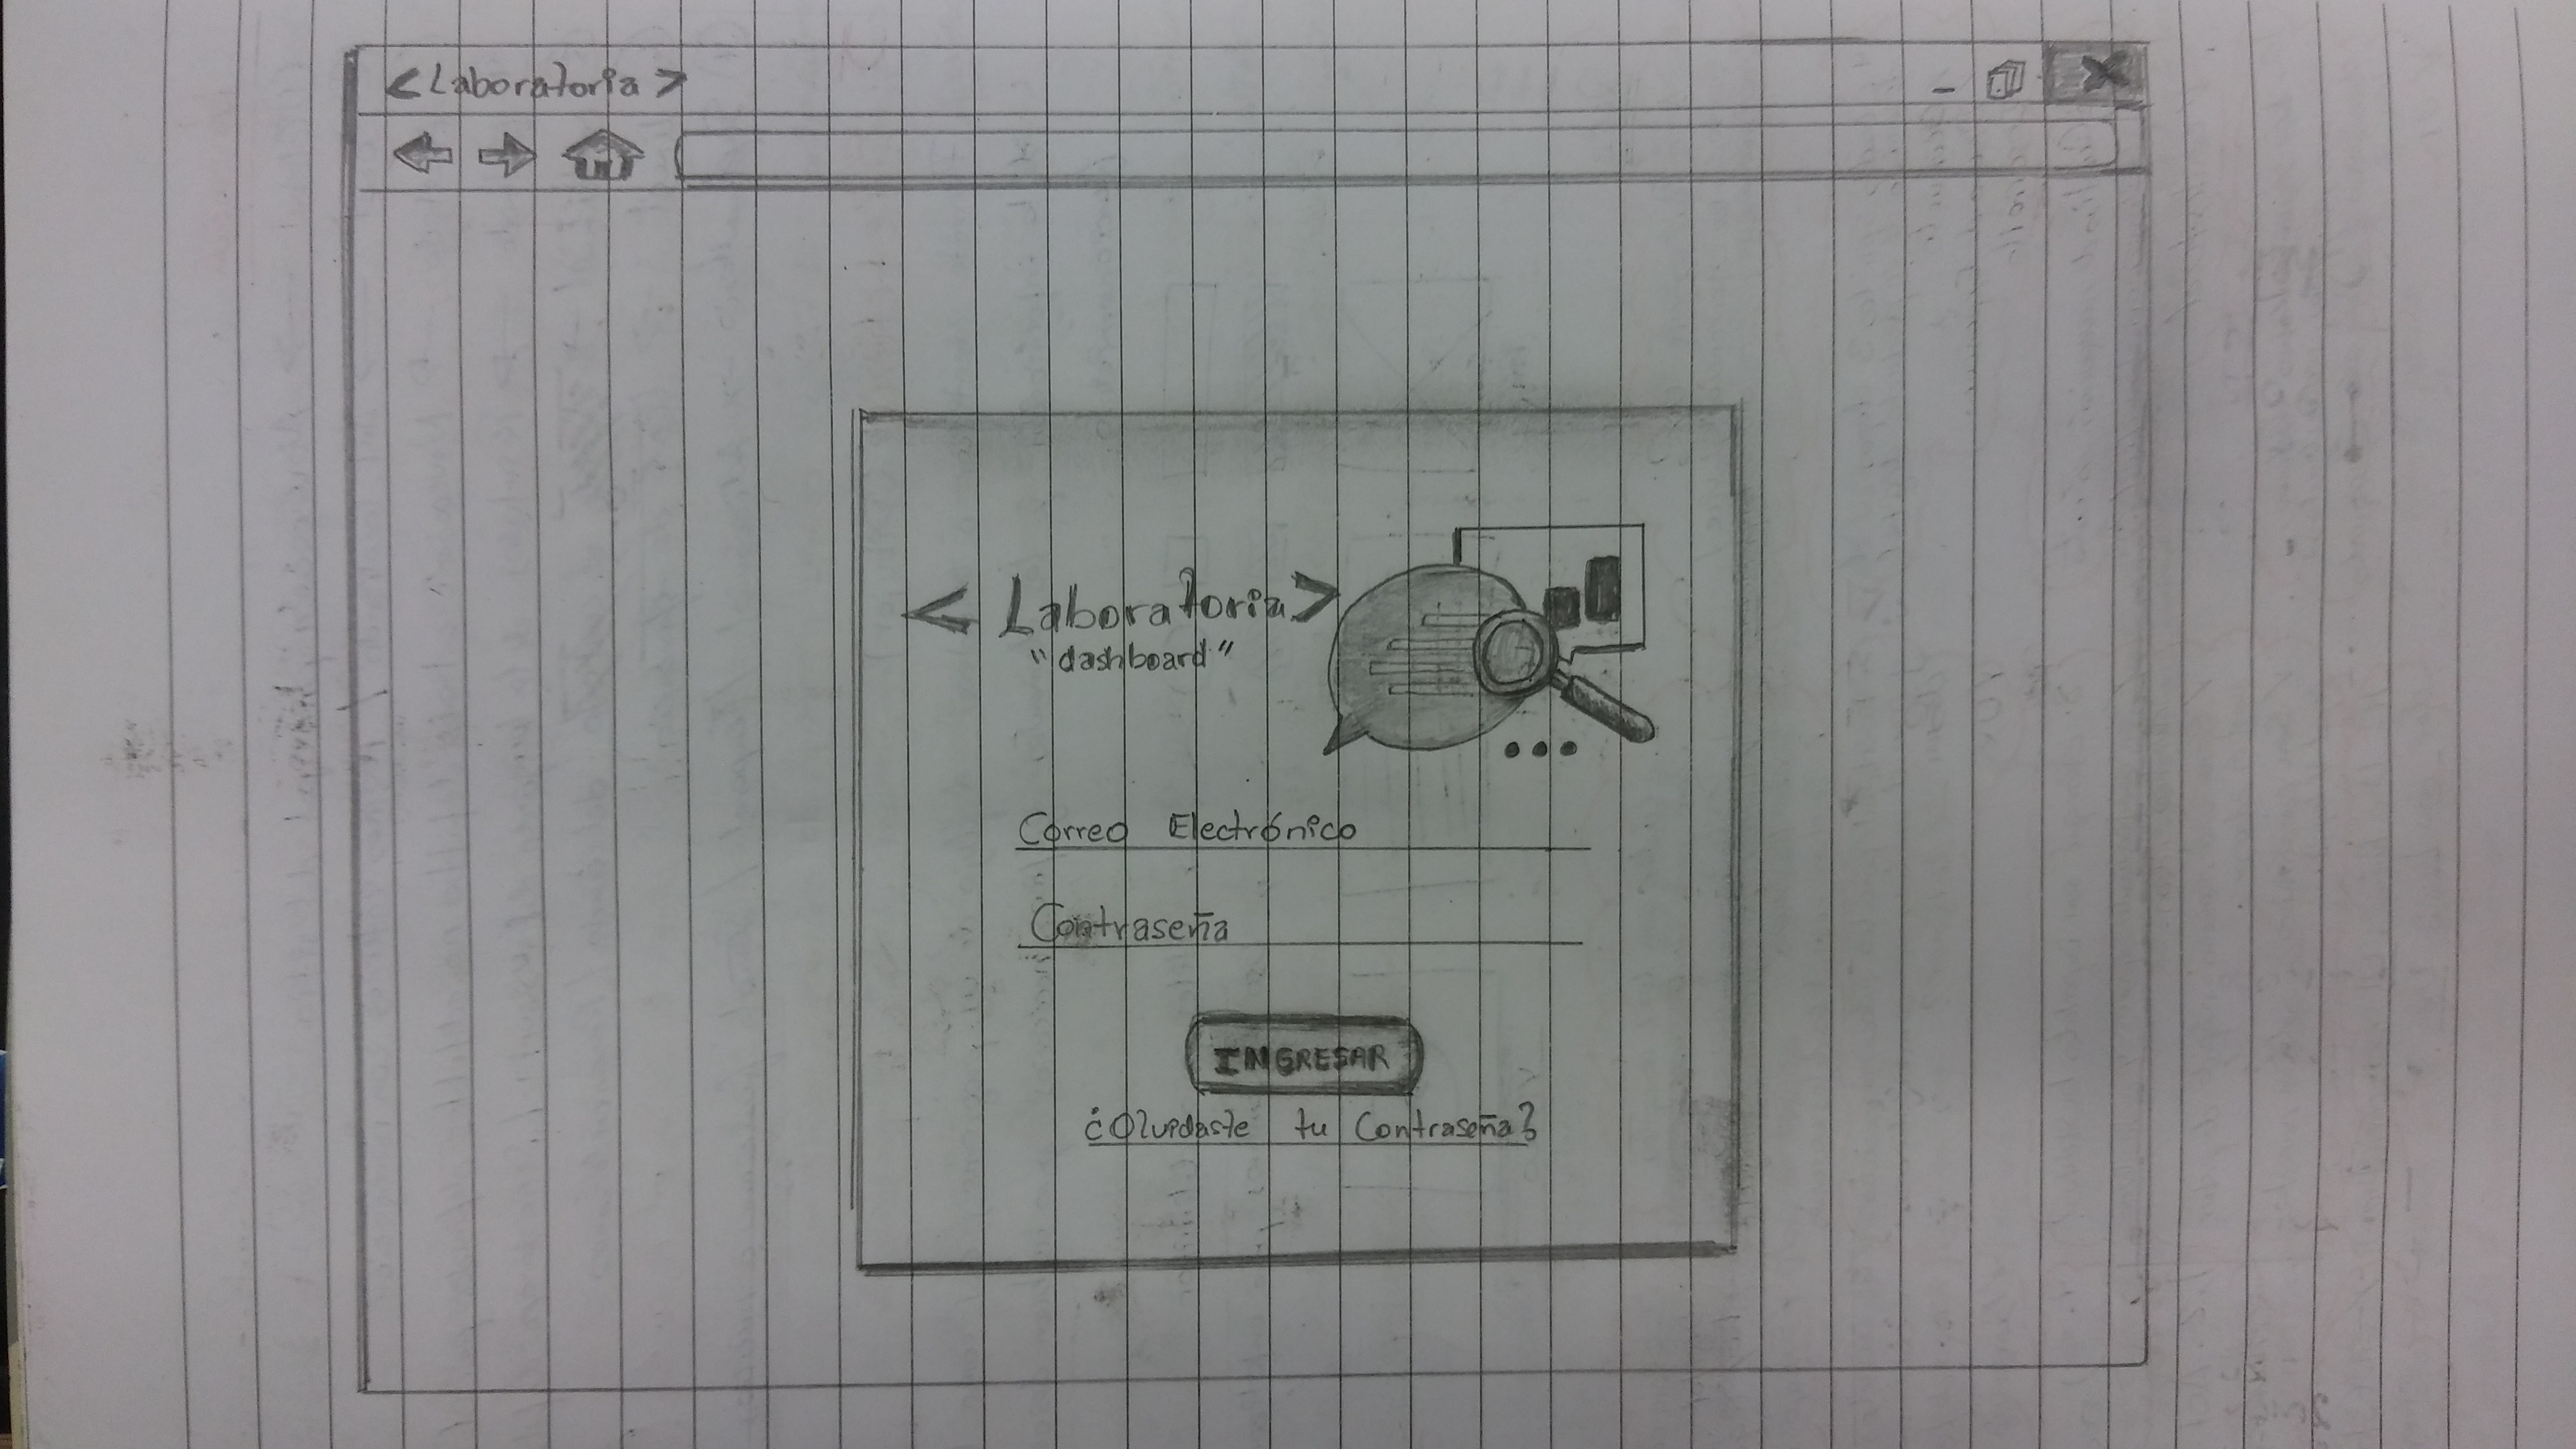 < Laboratoria >
< Laboratoria >
"dashboard"
Correo Electrónico
Contraseña
INGRESAR
¿Olvidaste tu Contraseña?